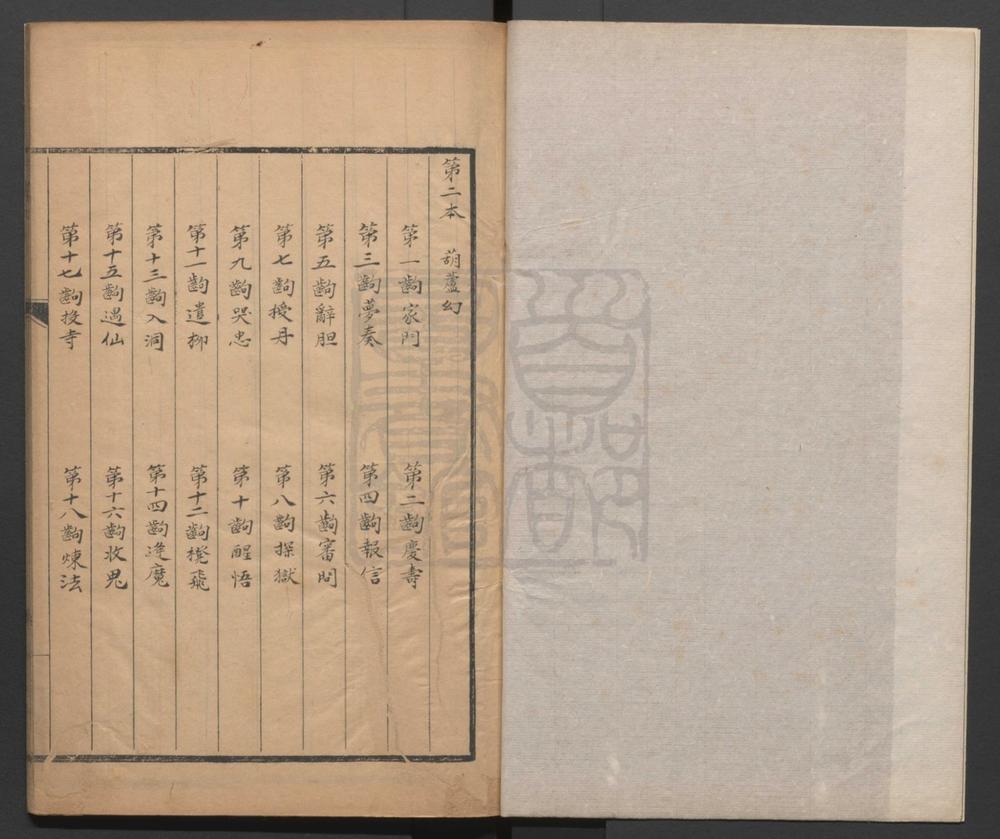 第二本　葫蘆幻
第一齣家門　第二齣慶壽
第三齣夢奏　第四齣報信
第五齣辭胆　第六齣審問
第七齣授丹　第八齣探獄
第九齣哭忠　第十齣醒悟
第十一齣遣柳　第十二齣櫈飛
第十三齣入洞　第十四齣逢魔
第十五齣遇仙　第十六齣收鬼
第十七齣投寺　第十八齣煉法